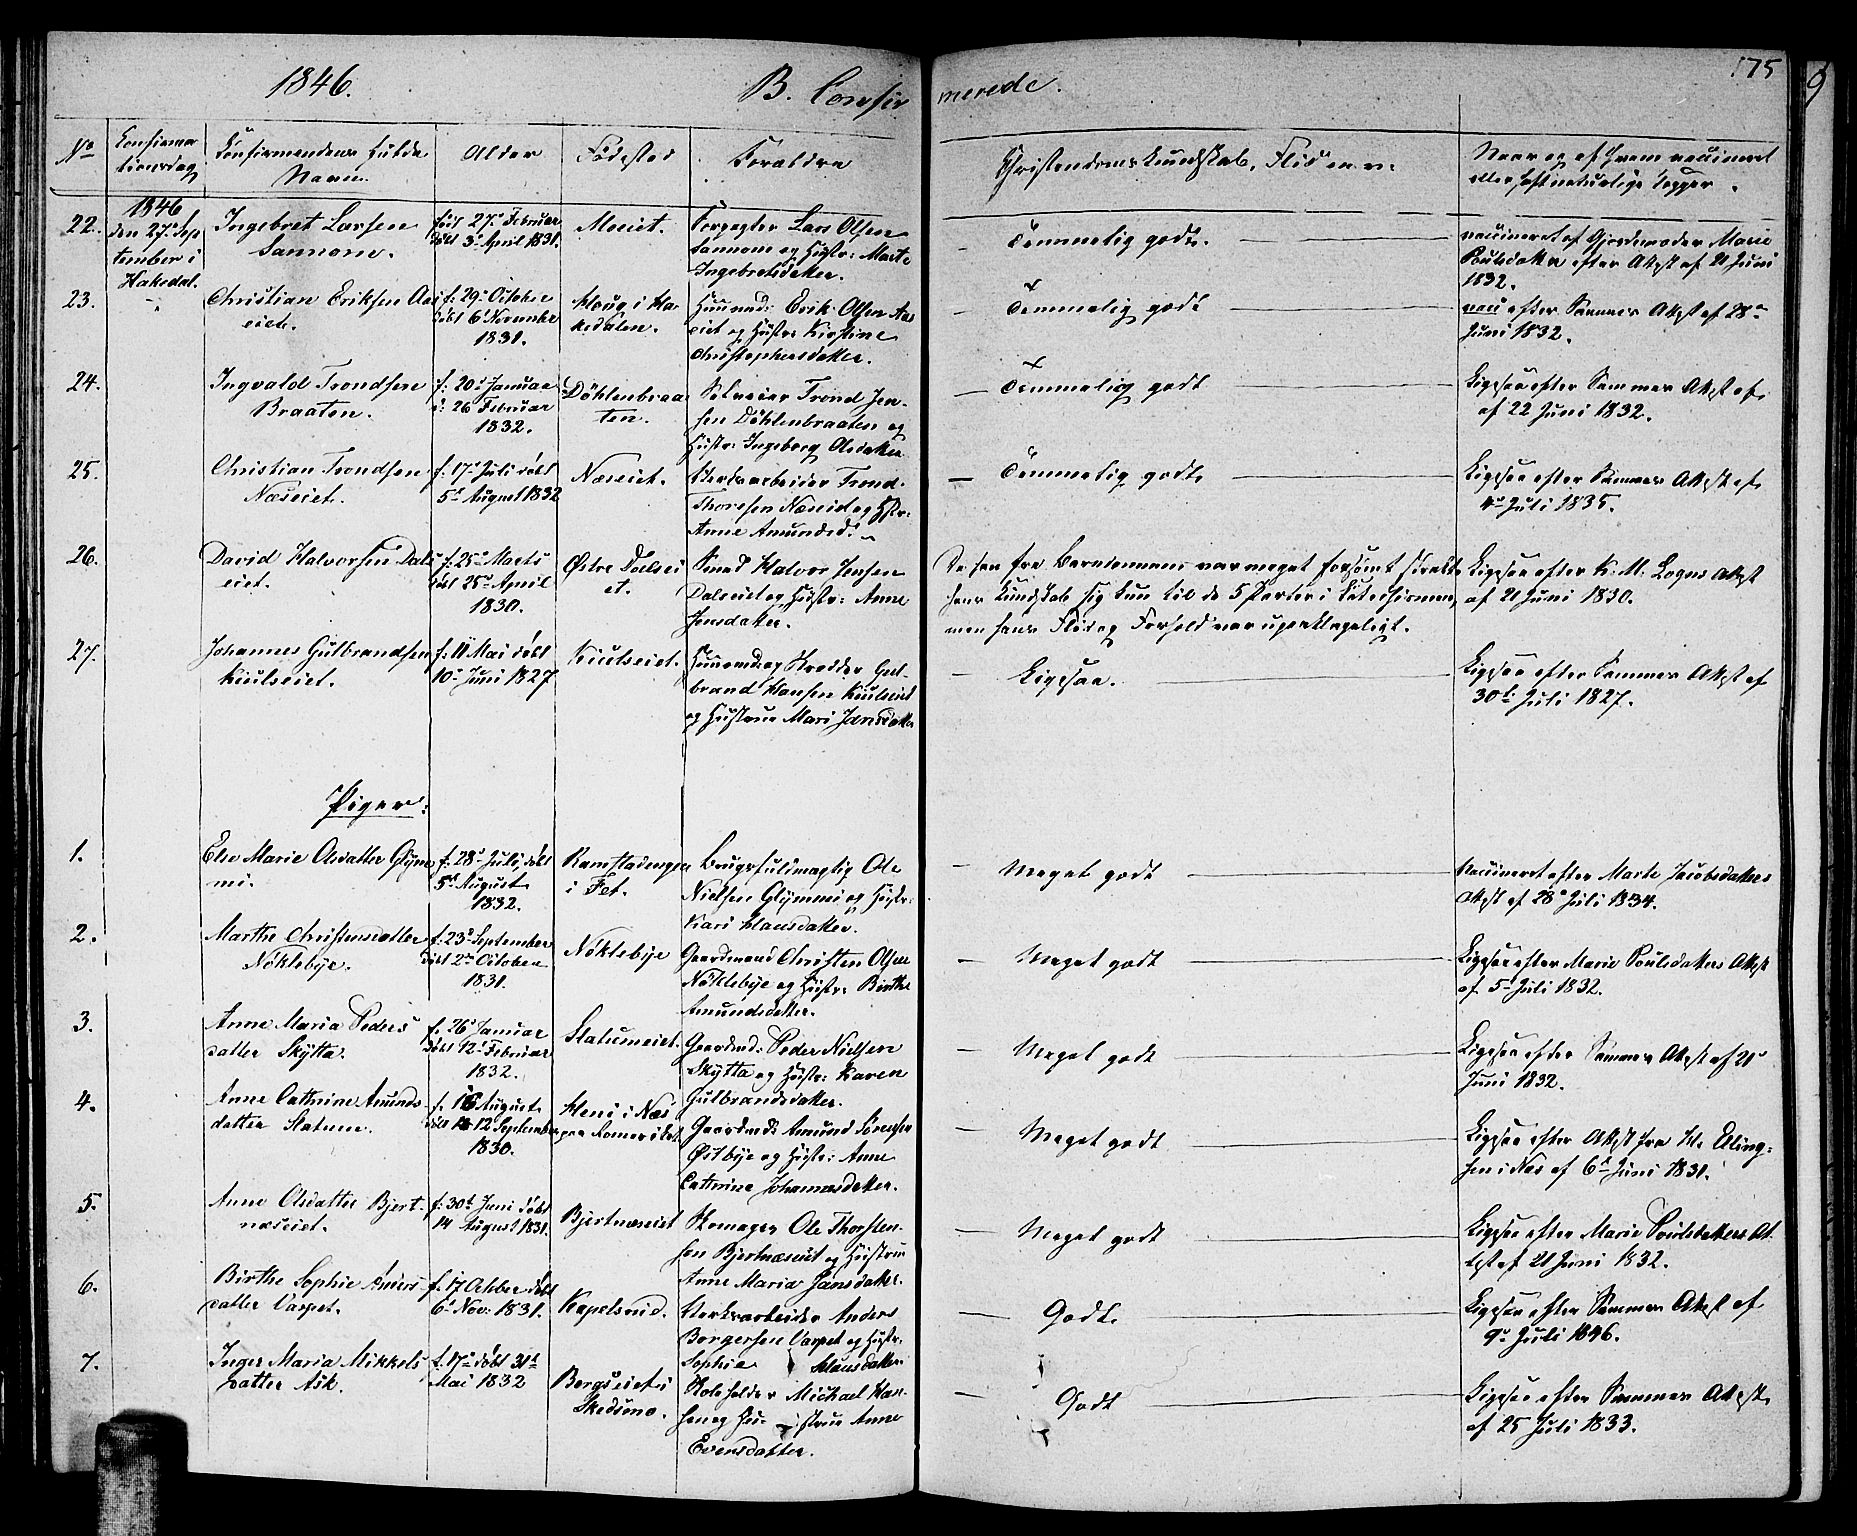 1846.
B. Confir
merede.
175
No
Confirma
tionsdag
Confirmandens fulde
Navn.
Alder
Födested
Forældre
Christendomskundskab, Flid m. v.
Naar og af hvem vaccineret
eller haft naturlige Kopper.
22.
1846
den 27de Sep
tember i
Hakedal.
Ingebret Larsen
Sannom.
föd 27de Februar
döbt 3de April 1831.
Moeiet.
Forpagter Lars Olsen
Sannom og Hustr: Marte
Ingebretsdatter.
Temmelig godt.
vaccineret af Gjordemoder Marie
Poulsdatter efter Attest af 21 Juni
1832.
23.
Christian Eriksen Aas
eiet.
f: 29de October
döbt 6te November
1831.
Houg i Ha
kedalen.
Huusmd: Erik Olsen Aas
eiet og Hustr: Kirstine
Christophersdatter.
Temmelig godt
vacc: efter Sammes Attest af 28de
Juni 1832.
24.
Ingvald Trondsen
Braaten.
f: 20de Januar
d: 26 Februar
1832.
Döhlenbraa
ten.
Selveier Trond Jen-
sen Döhlenbraaten og
Hustr: Ingeborg Olsdatter
Temmelig godt
Ligesaa efter Sammes Attest af
af 22 Juni 1832.
25.
Christian Trondsen
Næseiet.
f: 17de Juli döbt
5te August 1832
Næseiet.
Værksarbeider Trond
Thoresen Næseiet og Hstr:
Anne Amundsd:
Temmelig godt
Ligesaa efter Sammes Attest af
4de Juli 1835.
26.
David Halvorsen Dals
eiet.
f: 25de Marts
döbt 25de April
1830.
Østre Dalsei
et.
Smed Halvor Jensen
Dalseiet og Hustr: Anne
Jensdatter.
Da han fra Barndommen var meget forsömt strakte
hans Kundskab sig kun til de 5 Parter i Katechismen,
men hans Flid og Forhold var upaaklageligt.
Ligesaa efter K. M. Logns Attest
af 21 Juni 1830.
27.
Johannes Gulbrandsen
Kiulseiet.
f: 11 Mai döbt
10de Juni 1827
Kiulseiet.
Huusmd og Skrædder Gul-
brand Hansen Kiulseiet
og Hustrue Mari Jansdatter
Ligesaa.
Ligesaa efter Sammes Attest af
30te Juli 1827.
Piger:
1.
Else Marie Olsdatter Glym
mi.
f: 28de Juli, döbt
5te August
1832.
Ramstadengen
i Fet.
Brugsfuldmægtig Ole
Nielsen Glymmi og Hustr:
Kari Hansdatter.
Meget godt
Vaccineret efter Marte Jacobsdatters
Attest af 28de Juli 1834.
2.
Marthe Christensdatter
Nöklebye.
f: 23de September
döbt 2den October
1831.
Nöklebye
Gaardmand Christen Olsen
Nöklebye og Hustr: Birthe
Amundsdatter.
Meget godt
Ligesaa efter Marie Poulsdatters Attest
af 5te Juli 1832.
3.
Anne Maria Peders
datter Skytta.
f: 26de Januar
döbt 12te Februar
1832.
Slatumeiet.
Gaardmd: Peder Nielsen
Skytta og Hustr: Karen
Gulbrandsdatter.
Meget godt
Ligesaa efter Sammes Attest af 21de
Juni 1832.
4.
Anne Cathrine Amunds
datter Slatum.
f. 16 August
döbt 12 September
1830.
Heni i Næs
paa Romerike.
Gaardmd: Amund Sörensen
Østbye og Hustr: Anne
Cathrine Johannesdatter.
Meget godt
Ligesaa efter Attest fra Hr. Eling-
sen i Næs af 6te Juni 1831.
5.
Anne Olsdatter Bjert-
næseiet.
f: 30te Juni döbt
14 August 1831.
Bjertnæseiet
Skomager Ole Thorsten-
sen Bjertnæseiet og Hustrue
Anne Maria Jansdatter.
Meget godt
Ligesaa efter Marie Poulsdatters At
test af 21 Juni 1832.
6.
Birthe Sophie Anders
datter Varpet.
f. 17 October döbt
6te Nov: 1831.
Kapelsrud.
Værksarbeider Anders
Borgersen Varpet og Hustr.
Sophie Klausdatter
Godt
Ligesaa efter Sammes Attest af
9de Juli 1846.
7.
Inger Maria Mikkels
datter Ask.
f. 17de döbt 31te
Mai 1832
Borgseiet i
Skedsmo.
Rolsholder Michael Han
sen og Hu- strue Anne
Evensdatter.
Godt
Ligesaa efter Sammes Attest
af 25 Juli 1833.